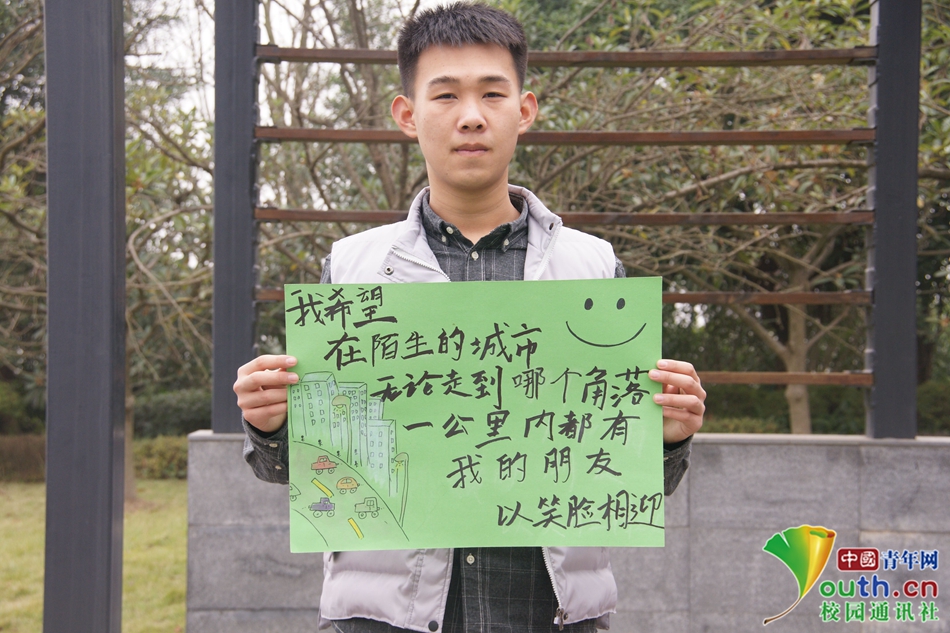 我希望
在陌生的城市
无论走到哪个角落
一公里内都有
我的朋友
以笑脸相迎
中國青年网
outh.cn
校园通讯社